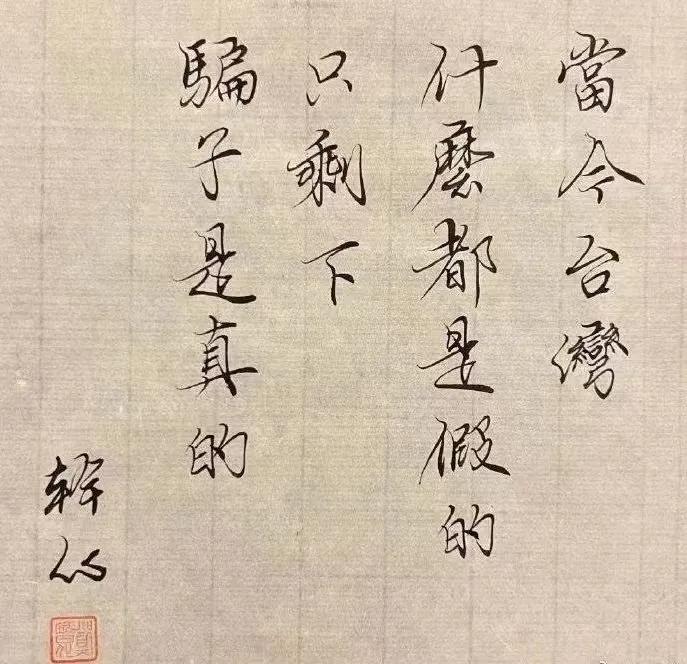 當今台灣
什麼都是假的
只剩下
騙子是真的
幹